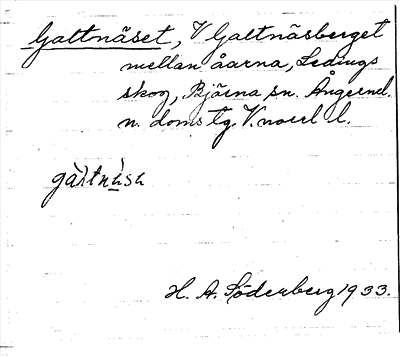 Galtnäset, V Galtnäsberget
mellan åarna, Ledings
skog, Bjärna sn. Ångerml.
n. doms tg. V.norrl l.
gàltnẁsu
H. A. Söderberg 1933.